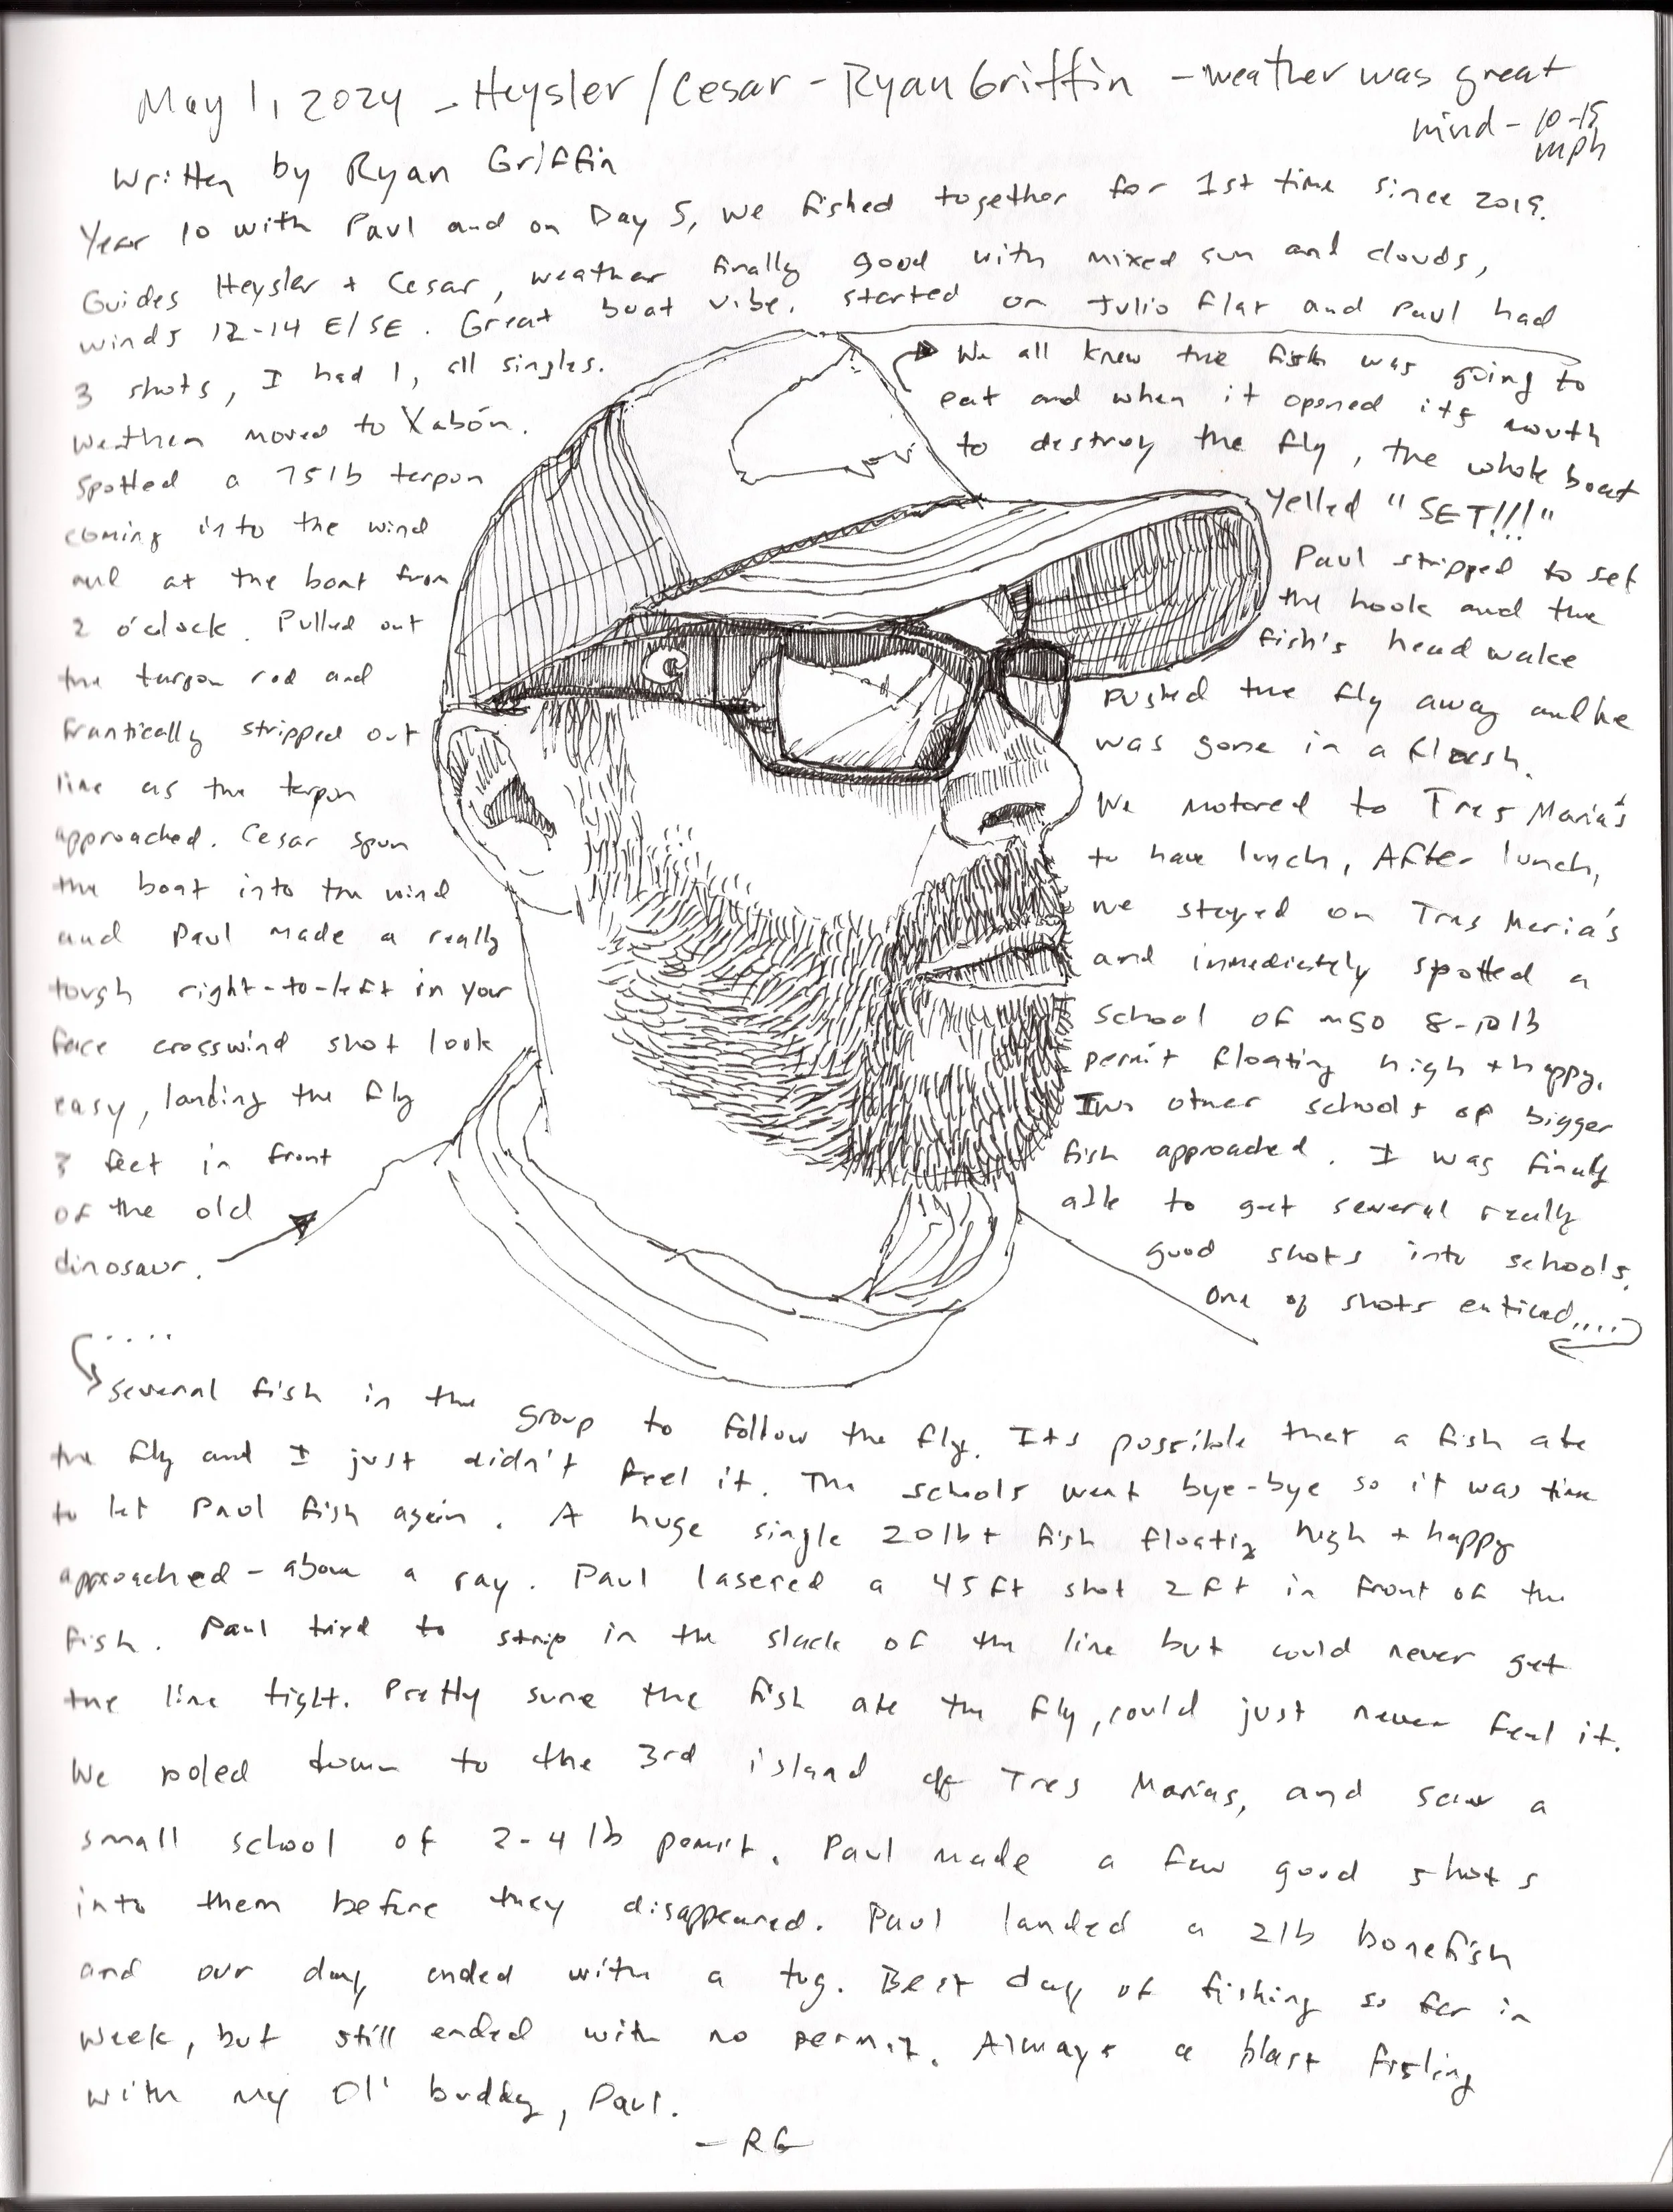 May 1, 2024 - Heysler/Cesar - Ryan Griffin - weather was great
wind - 10-15
mph
Written by Ryan Griffin
Year 10 with Paul and on Day 5, we fished together for 1st time since 2019.
Guides Heysler + Cesar, weather finally good with mixed sun and clouds,
winds 12-14 E/SE. Great boat vibe. Started on Julio flat and Paul had
3 shots, I had 1, all singles.
We then moved to Xabón.
Spotted a 75lb tarpon
coming into the wind
and at the boat from
2 o'clock. Pulled out
the tarpon rod and
frantically stripped out
line as the tarpon
approached. Cesar spun
the boat into the wind
and Paul made a really
tough right-to-left in your
face crosswind shot look
easy, landing the fly
3 feet in front
of the old
dinosaur.
We all knew the fish was going to
eat and when it opened its mouth
to destroy the fly, the whole boat
yelled "SET!!!"
Paul stripped to set
the hook and the
fish's head wake
pushed the fly away and he
was gone in a flash.
We motored to Tres Maria's
to have lunch, After lunch,
we stayed on Tres Maria's
and immediately spotted a
school of ~50 8-10lb
permit floating high + happy.
Two other schools of bigger
fish approached. I was finally
able to get several really
good shots into schools.
One of shots enticed....
....
several fish in the group to follow the fly. Its possible that a fish ate
the fly and I just didn't feel it. The schools went bye-bye so it was time
to let Paul fish again. A huge single 20lb+ fish floating high + happy
approached - above a ray. Paul lasered a 45ft shot 2ft in front of the
fish. Paul tried to strip in the slack of the line but could never get
the line tight. Pretty sure the fish ate the fly, could just never feel it.
We poled down to the 3rd island off Tres Marias, and saw a
small school of 2-4lb permit. Paul made a few good shots
into them before they disappeared. Paul landed a 2lb bonefish
and our day ended with a tug. Best day of fishing so far in
week, but still ended with no permit. Always a blast fishing
with my Ol' buddy, Paul.
- RG